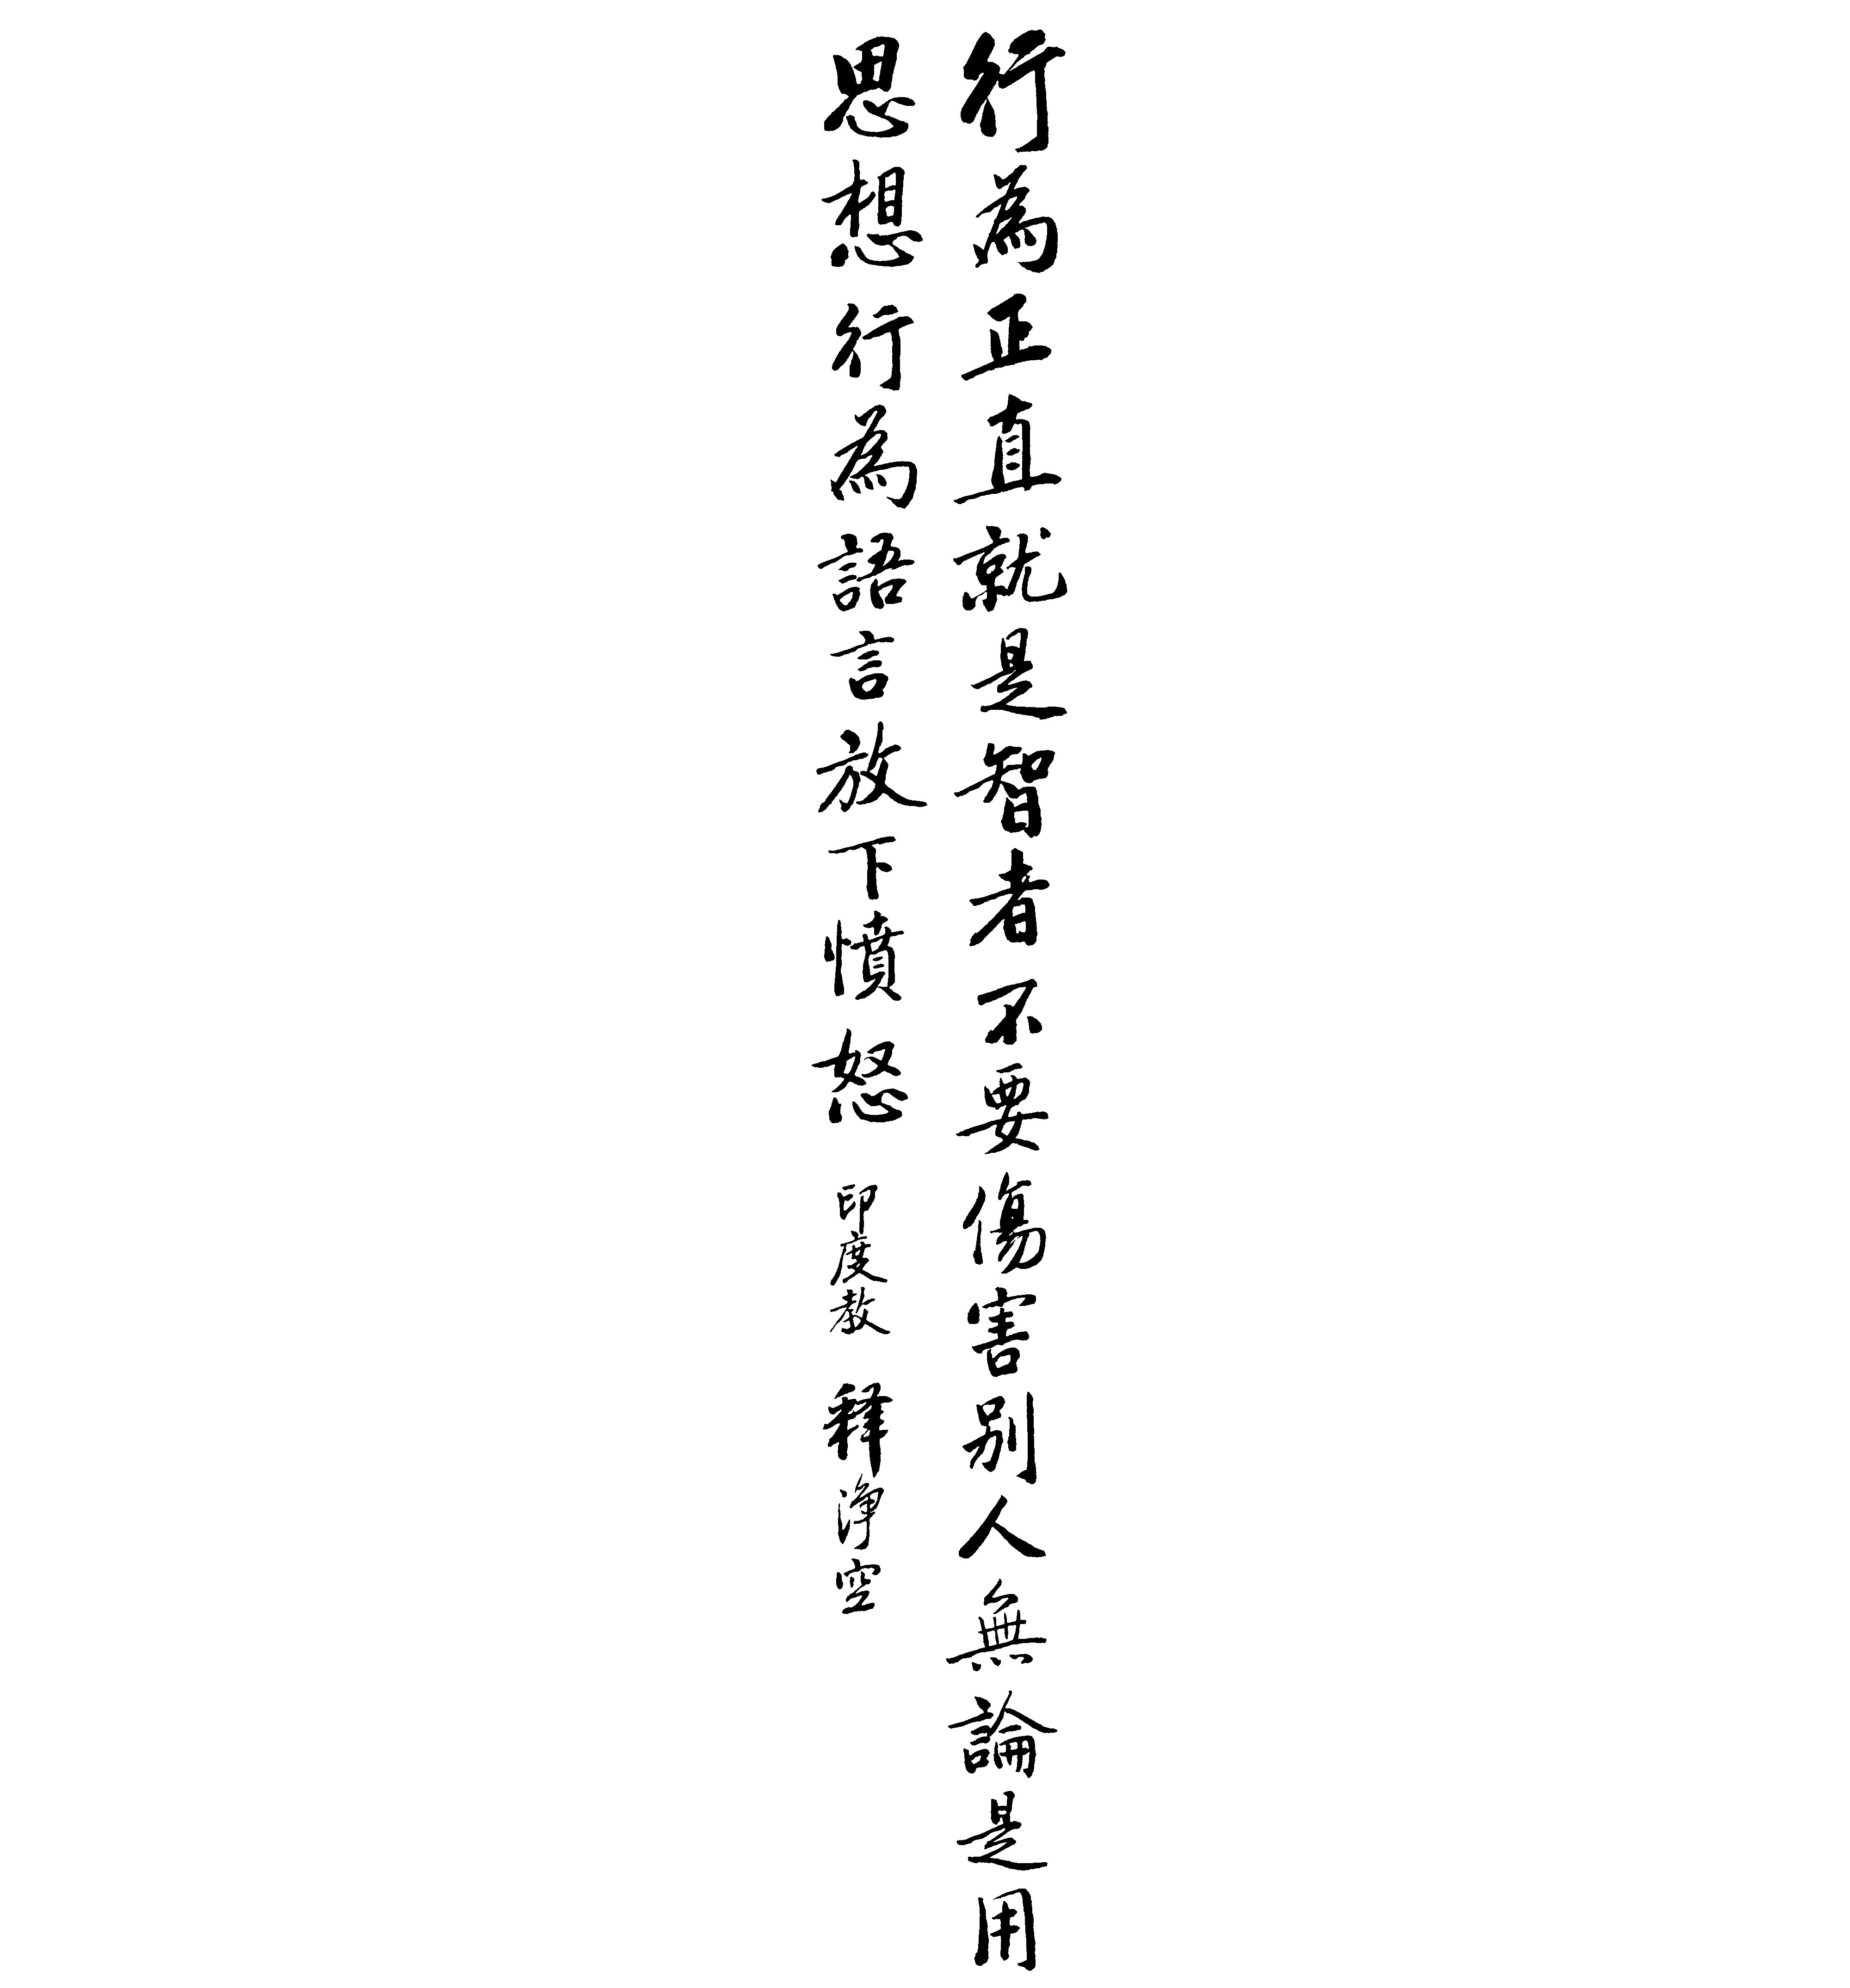 行為正直就是智者不要傷害别人無論是用
思想行為語言放下憤怒 印度教 釋淨空